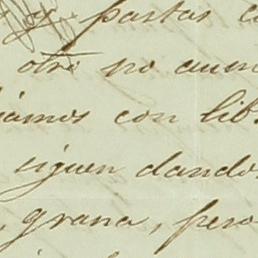 y pastas c
otro no aum
iamos con lib
siguen dando
, grana, pero